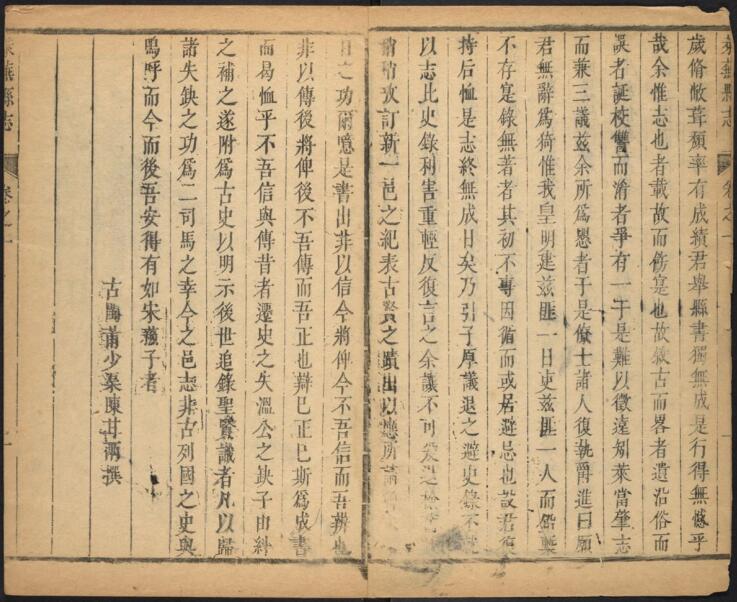 萊蕪縣志
卷之一
歲脩敝葺類率有成績君舉縣書獨無成是行得無憾乎
哉余惟志也者載故而傍寔也故泥古而畧者遺沿俗而
誤者誕校讐而淆者爭有一于是難以徵遠矧萊當肇志
而兼三議茲余所爲懇者于是僚士諸人復執爵進曰願
君無辭爲猗惟我皇明建茲匪一日吏茲匪一人而
不存寔錄無著者其初不專因循而或居避忌也設君復
持后恤是志終無成日矣乃引子原議退之避史錄不
以志此史錄利害重輕反復言之余讓不可
稍攷訂新一邑之紀表古賢之蹟出以應
日之功爾噫是書出非以信今將俾今不吾信而吾辨也
非以傳後將俾後不吾傳而吾正也辯巳正巳斯爲成書
而曷恤乎不吾信與傳昔者遷史之失溫公之缺子由糾
之補之遂附爲古史以明示後世追錄聖賢識者凡以歸
諸失缺之功爲二司馬之幸今之邑志非古列國之史與
嗚呼而今而後吾安得有如宋蘓子者
古閩莆少渠陳甘雨撰
萊蕪縣志
卷之一